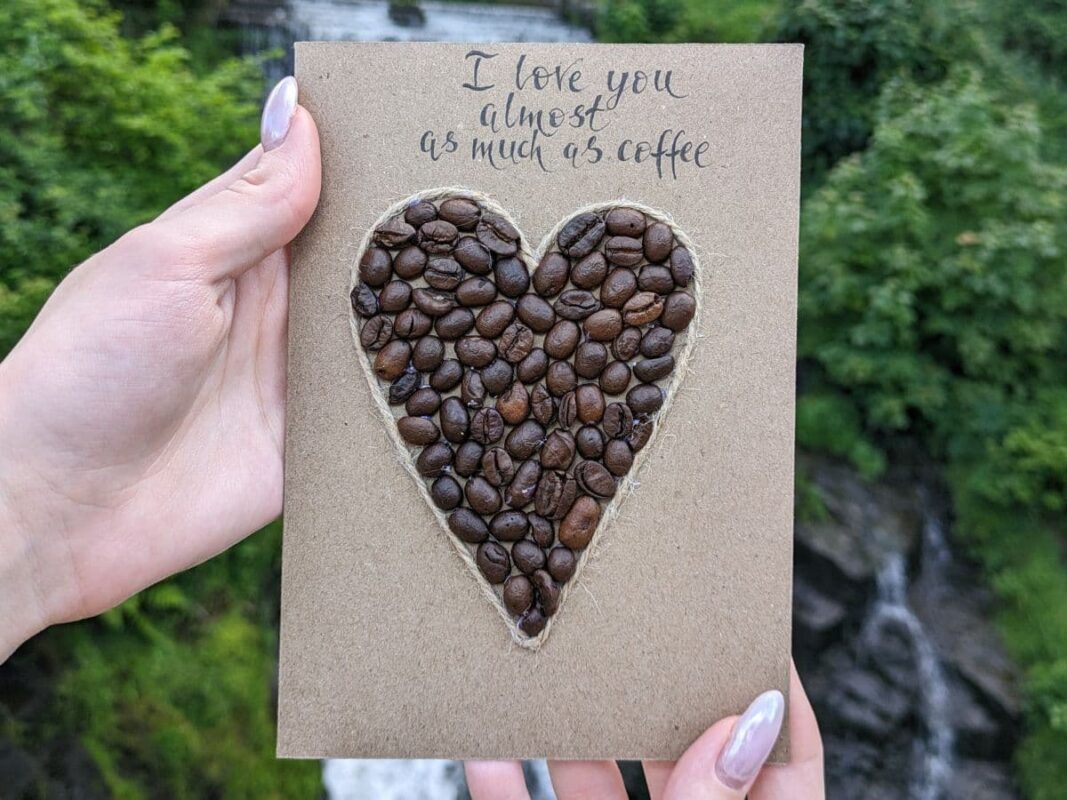 I love you
almost
as much as coffee